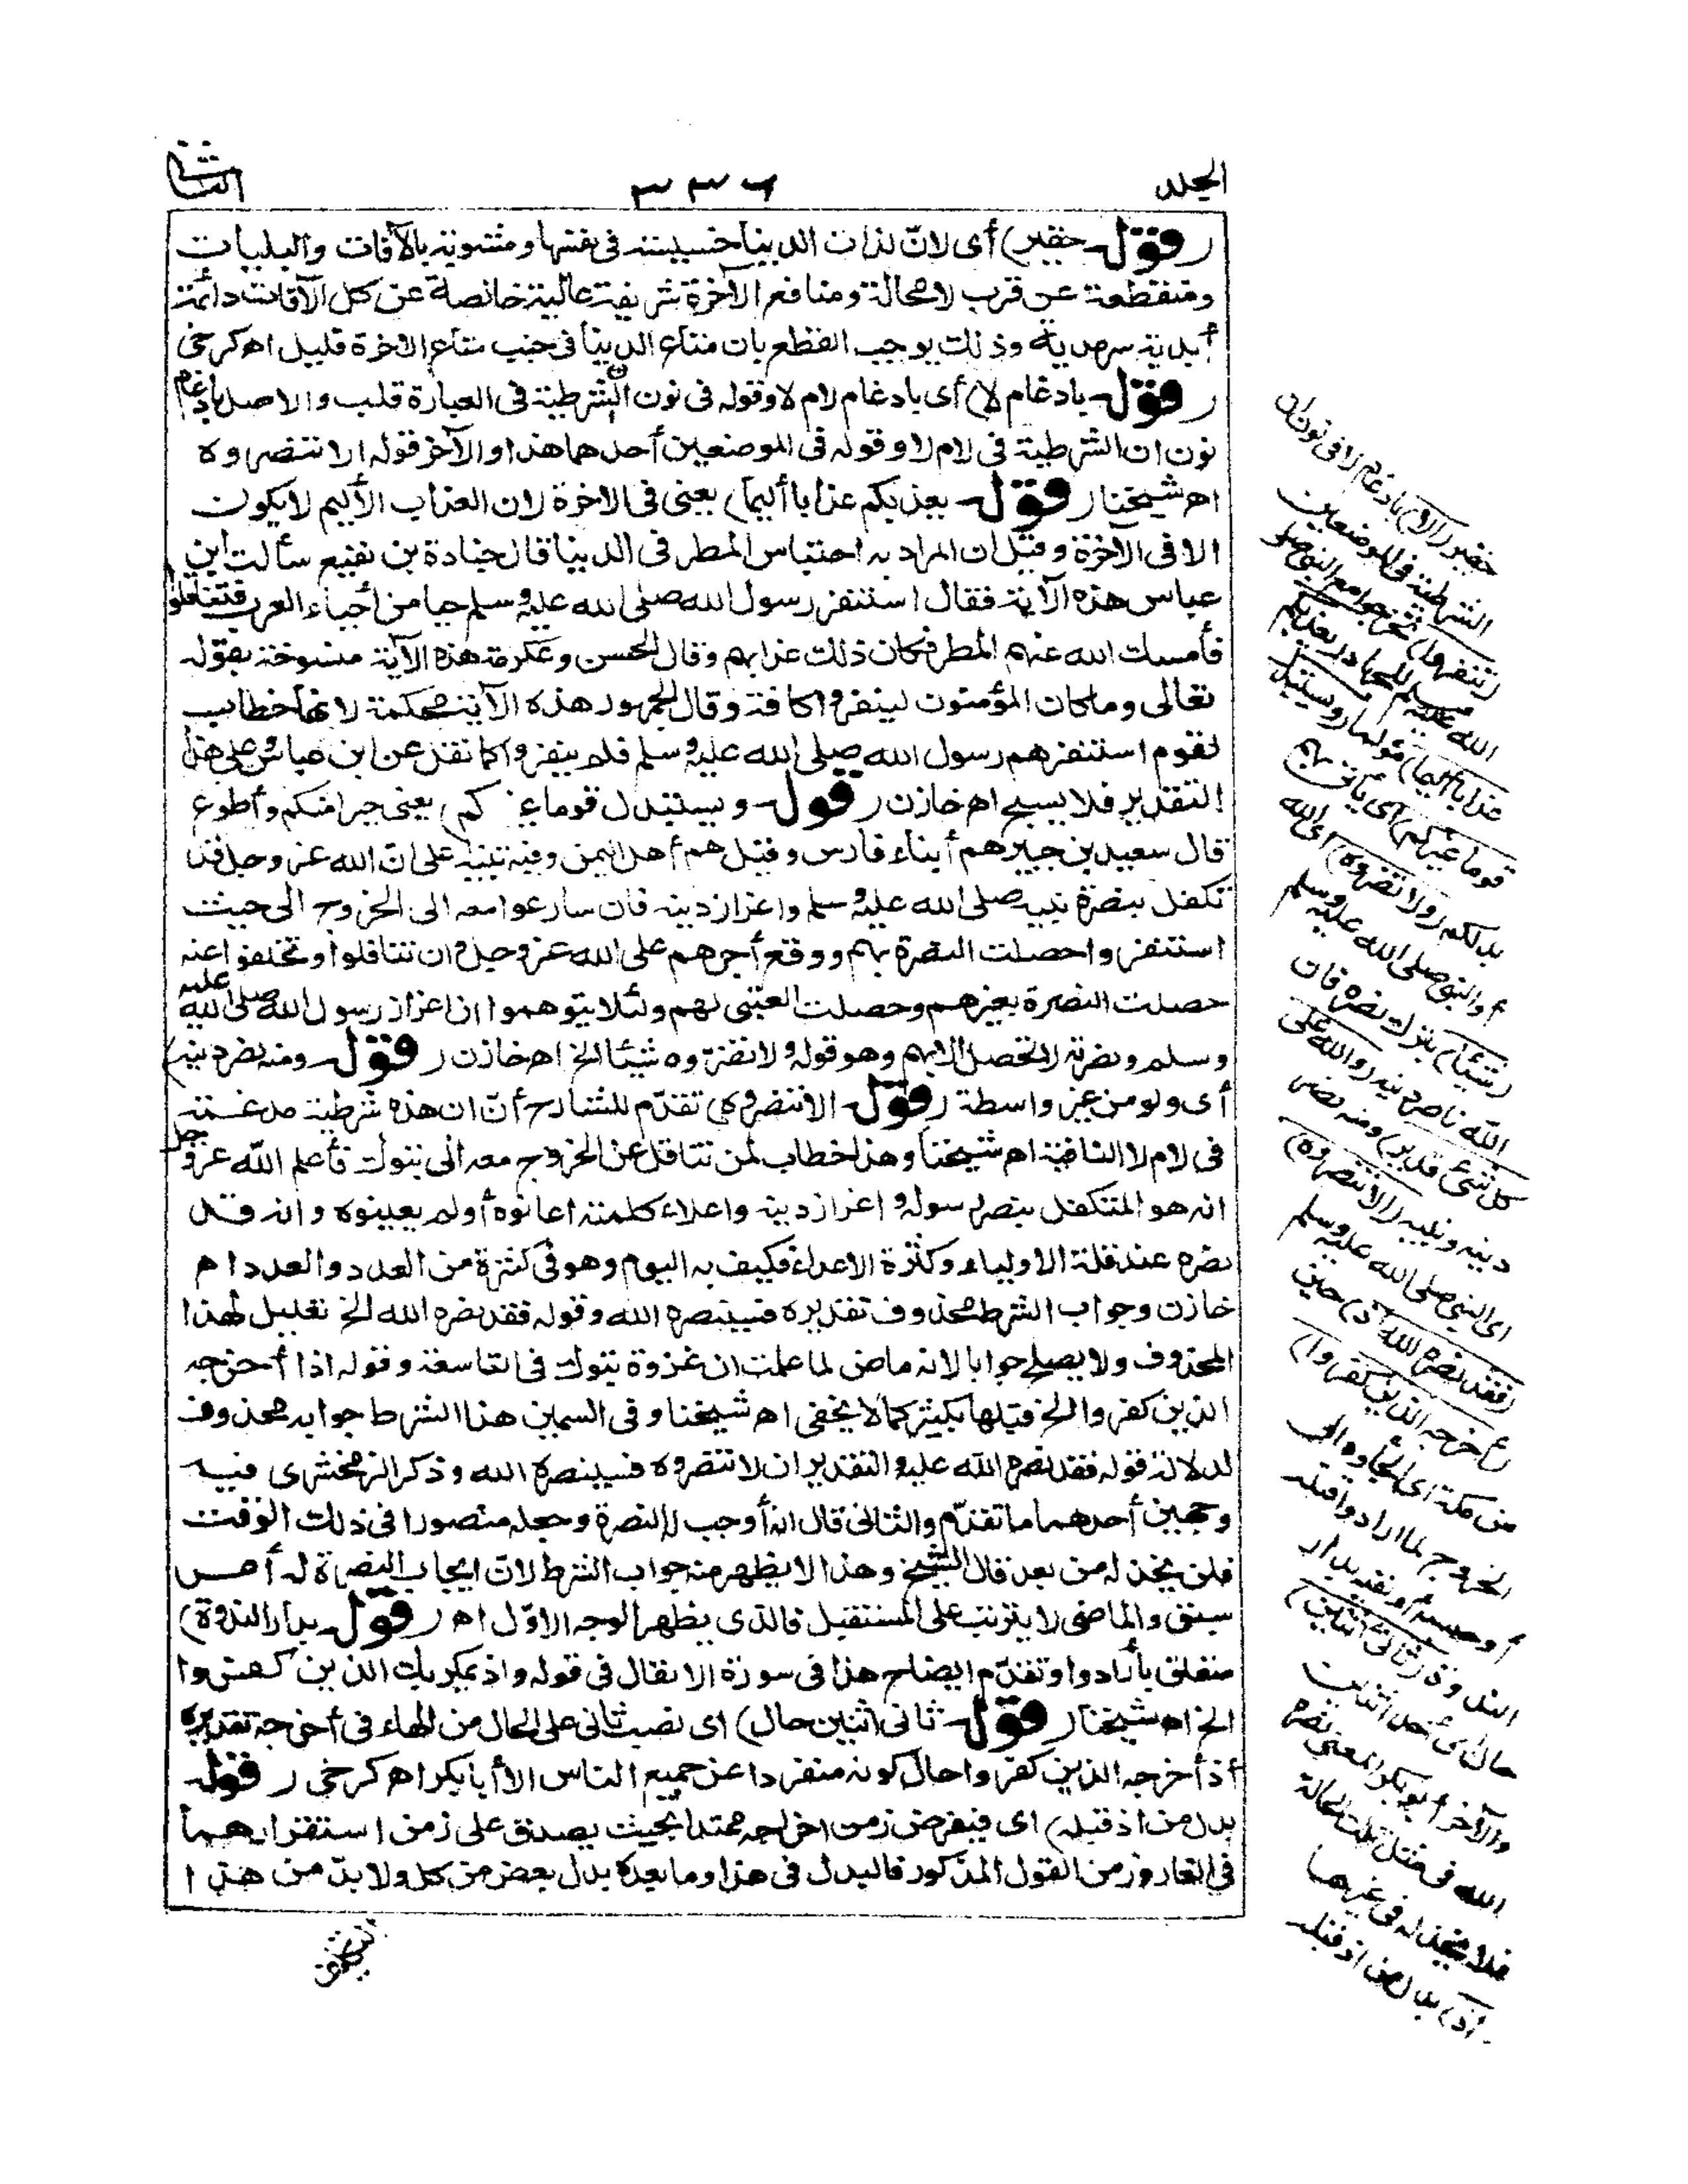 الجلد
٣٣٦
الثاني
(قوله حقير) أى لانّ لذات الدنيا خسيسة فى نفسها ومشوبة بالآفات والبليات
ومنقطعة عن قرب لا محالة ومنافع الآخرة شريفة عالية خالصة عن كل الآفات دائمة
أبدية سرمدية وذلك يوجب القطع بان متاع الدنيا فى جنب متاع الاخرة قليل اه كرخى
(قوله بادغام لا) أى بادغام لام لا وقوله فى نون ان الشرطية فى العبارة قلب والاصل بادغام
نون ان الشرطية فى لام لا وقوله فى الموضعين أحدهما هذا والآخر قوله الا تنصروه
اه شيخنا (قوله يعذبكم عذابا أليما) يعنى فى الاخرة لان العذاب الأليم لا يكون
الا فى الآخرة وقيل ان المراد به احتباس المطر فى الدنيا قال جنادة بن نفيع سألت ابن
عباس هذه الآية فقال استنفر رسول الله صلى الله عليه وسلم حيا من أحياء العرب فتثاقلوا
فأمسك الله عنهم المطر فكان ذلك عذابهم وقال الحسن وعكرمة هذه الآية منسوخة بقوله
تعالى وما كان المؤمنون لينفروا كافة وقال الجمهور هذه الآية محكمة لانها خطاب
لقوم استنفرهم رسول الله صلى الله عليه وسلم فلم ينفروا كما نقل عن ابن عباس وعلى هذا
التقدير فلا نسخ اه خازن (قوله ويستبدل قوما غيركم) يعنى خيرا منكم وأطوع
قال سعيد بن جبير هم أبناء فارس وقيل هم أهل اليمن وفيه تنبيه على انّ الله عز وجل قد
تكفل بنصرة نبيه صلى الله عليه وسلم واعزاز دينه فان سارعوا معه الى الخروج الى حيث
استنفروا حصلت النصرة بهم ووقع أجرهم على الله عز وجل وان تثاقلوا وتخلفوا عنه
حصلت النصرة بغيرهم وحصلت العتبى لهم ولئلا يتوهموا ان اعزاز رسول الله صلى الله عليه
وسلم ونصرته لا تحصل الا بهم وهو قوله ولا تضرّوه شيئا الخ اه خازن (قوله ومنه نصر دينه)
أى ولو من غير واسطة (قوله الا تنصروه) تقدّم للشارح أنّ ان هذه شرطية مدغمة
فى لام لا النافية اه شيخنا وهذا خطاب لمن تثاقل عن الخروج معه الى تبوك فأعلم الله عز وجل
انه هو المتكفل بنصر رسوله واعزاز دينه واعلاء كلمته اعانوه أو لم يعينوه وانه قد
نصره عند قلة الاولياء وكثرة الاعداء فكيف به اليوم وهو فى كثرة من العدد والعدد اه
خازن وجواب الشرط محذوف تقديره فسينصره الله وقوله فقد نصره الله الخ تعليل لهذا
المحذوف ولا يصلح جوابا لانه ماض لما علمت ان غزوة تبوك فى التاسعة وقوله اذ أخرجه
الذين كفروا الخ قبلها بكثير كما لا يخفى اه شيخنا وفى السمين هذا الشرط جوابه محذوف
لدلالة قوله فقد نصره الله عليه والتقدير ان لا تنصروه فسينصره الله وذكر الزمخشرى فيه
وجهين أحدهما ما تقدّم والثانى قال انه أوجب له النصرة وجعله منصورا فى ذلك الوقت
فلن يخذله من بعد قال الشيخ وهذا لا يظهر منه جواب الشرط لانّ ايجاب النصرة له أمر
سبق والماضى لا يترتب على المستقبل فالذى يظهر الوجه الاوّل اه (قوله بدار الندوة)
متعلق بأرادوا وتقدّم ايضاح هذا فى سورة الانفال فى قوله واذ يمكر بك الذين كفروا
الخ اه شيخنا (قوله ثانى اثنين حال) اى نصب ثانى على الحال من الهاء فى أخرجه تقديره
اذ أخرجه الذين كفروا حال كونه منفردا عن جميع الناس الا أبا بكر اه كرخى (قوله
بدل من اذ قبله) اى فيفرض زمن اخراجه ممتدا بحيث يصدق على زمن استقرارهما
فى الغار وزمن القول المذكور فالبدل فى هذا وما بعده بدل بعض من كل ولا بدّ من هذا
حقير (الا) بادغام لا فى نون ان
الشرطية فى الموضعين
(تنفروا) تخرجوا مع النبى صلى
الله عليه وسلم للجهاد (يعذبكم
عذابا أليما) مؤلما (ويستبدل
قوما غيركم) أى يأت بهم
بدلكم (ولا تضروه) اى الله
أو النبى صلى الله عليه وسلم
(شيئا) بترك نصره فان
الله ناصر دينه (والله على
كل شئ قدير) ومنه نصر
دينه ونبيه (الا تنصروه)
اى النبى صلى الله عليه وسلم
(فقد نصره الله اذ) حين
(أخرجه الذين كفروا)
من مكة اى ألجأوه الى
الخروج لما ارادوا قتله
أو حبسه أو نفيه بدار
الندوة (ثانى اثنين)
حال اى أحد اثنين
والآخر أبو بكر المعنى نصره
الله فى مثل تلك الحالة
فلا يخذله فى غيرها
(اذ) بدل من اذ قبله